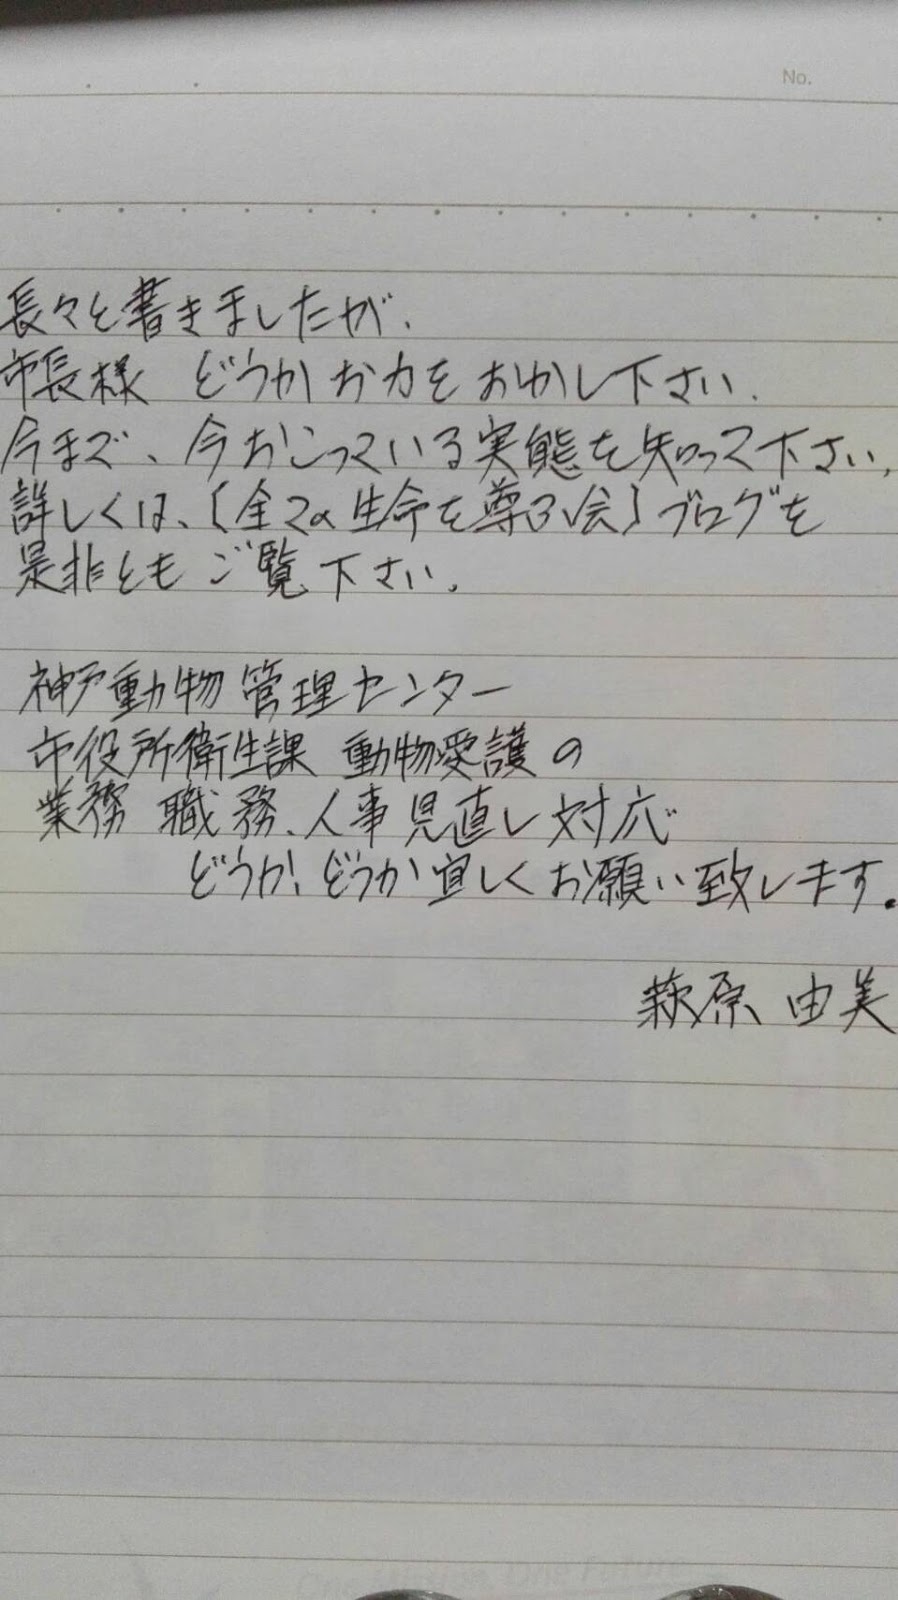 No.
長々と書きましたが、
市長様 どうかお力をおかし下さい、
今まで、今おこっている実態を知って下さい、
詳しくは、〔全ての生命を尊ぶ会〕ブログを
是非ともご覧下さい、
神戸動物管理センター
市役所衛生課 動物愛護の
業務 職務、人事見直し対応
どうか、どうか宜しくお願い致します。
萩原 由美
One Nation, One Future